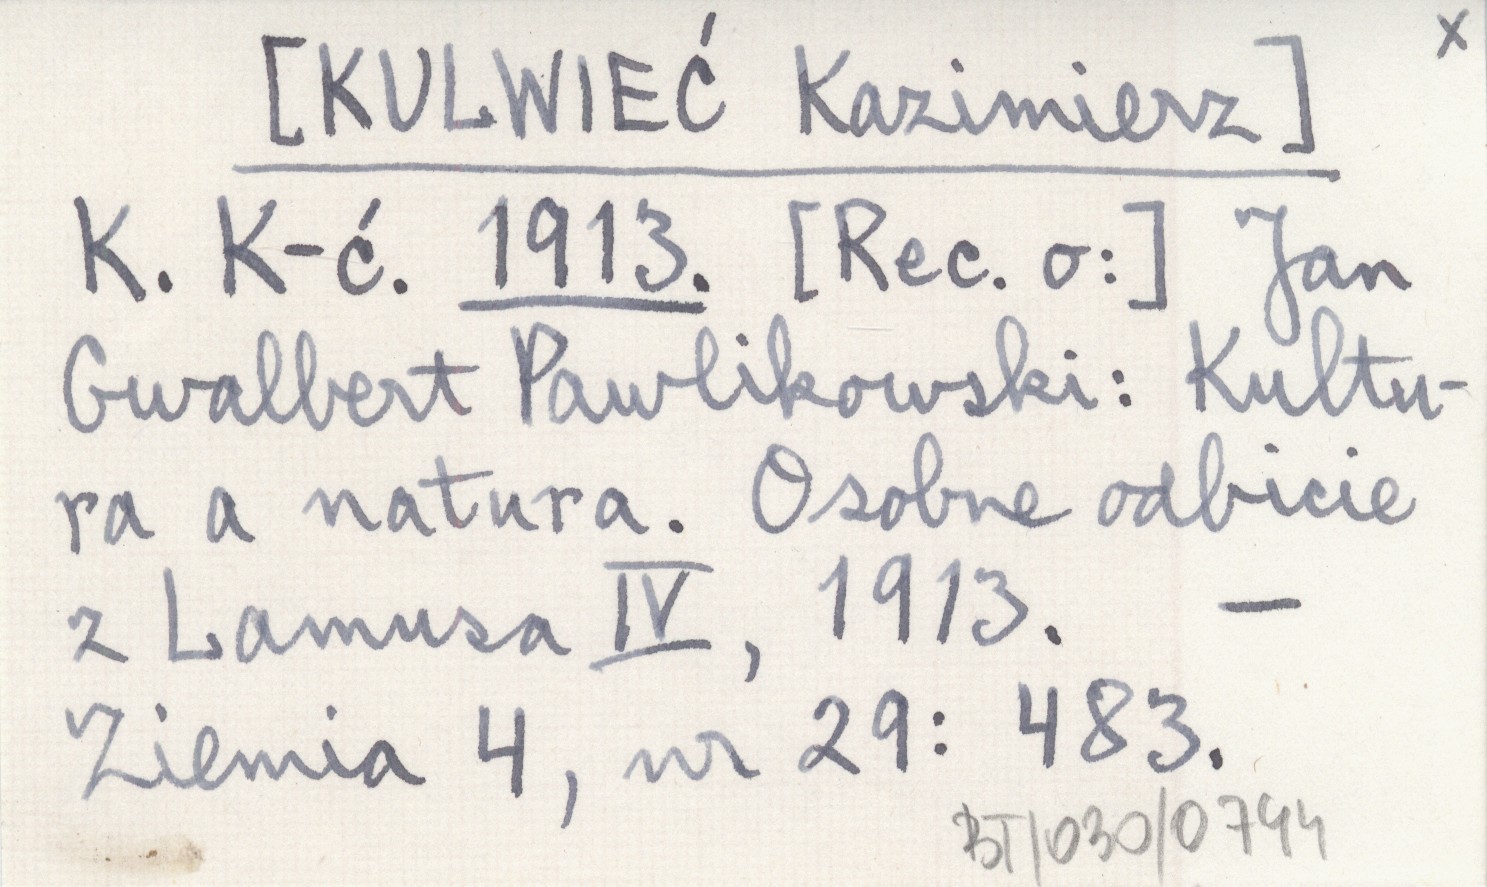 x
[KULWIEĆ Kazimierz]
K. K-ć. 1913. [Rec. o:] Jan
Gwalbert Pawlikowski: Kultu-
ra a natura. Osobne odbicie
z Lamusa IV, 1913. —
Ziemia 4, nr 29: 483.
BT/030/0744